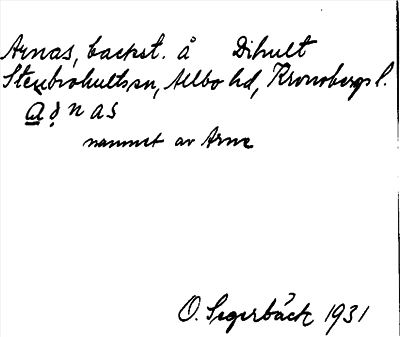 Arnas, backst. å Dihult
Stenbrohultssn, Allbo hd, Kronobergs l.
a̲ṇnas
namnet av Arne
O. Segerbäck 1931